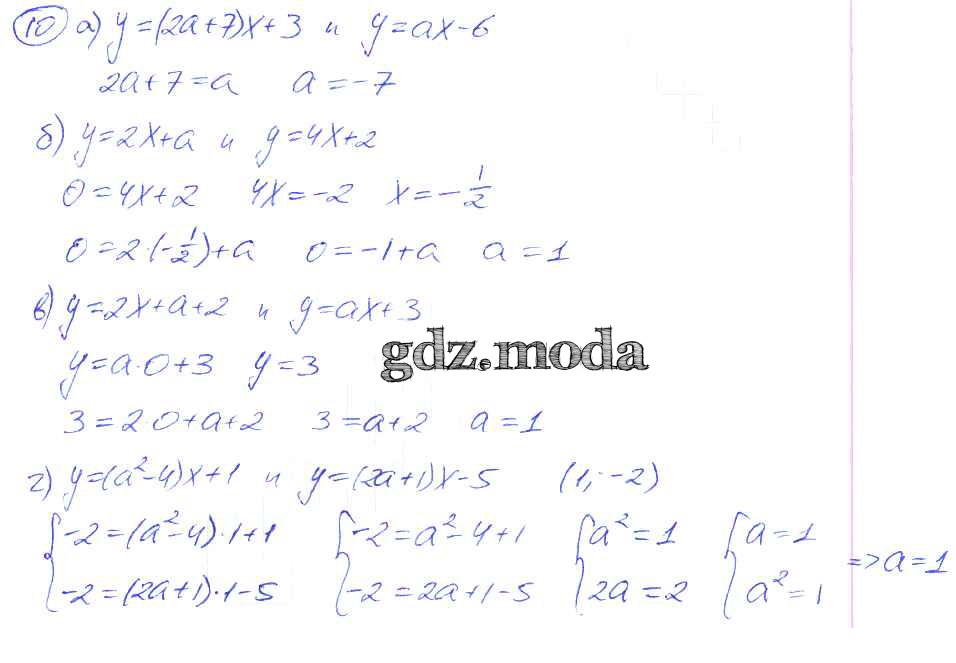 10 а) y=(2a+7)x+3 и y=ax-6
2a+7=a a=-7
б) y=2x+a и y=4x+2
0=4x+2 4x=-2 x=-1/2
0=2·(-1/2)+a 0=-1+a a=1
в) y=2x+a+2 и y=ax+3
gdz.moda
y=a·0+3 y=3
3=2·0+a+2 3=a+2 a=1
г) y=(a²-4)x+1 и y=(2a+1)x-5 (1;-2)
{-2=(a²-4)·1+1 {-2=a²-4+1 {a²=1 {a=1
=> a=1
-2=(2a+1)·1-5 -2=2a+1-5 2a=2 a²=1